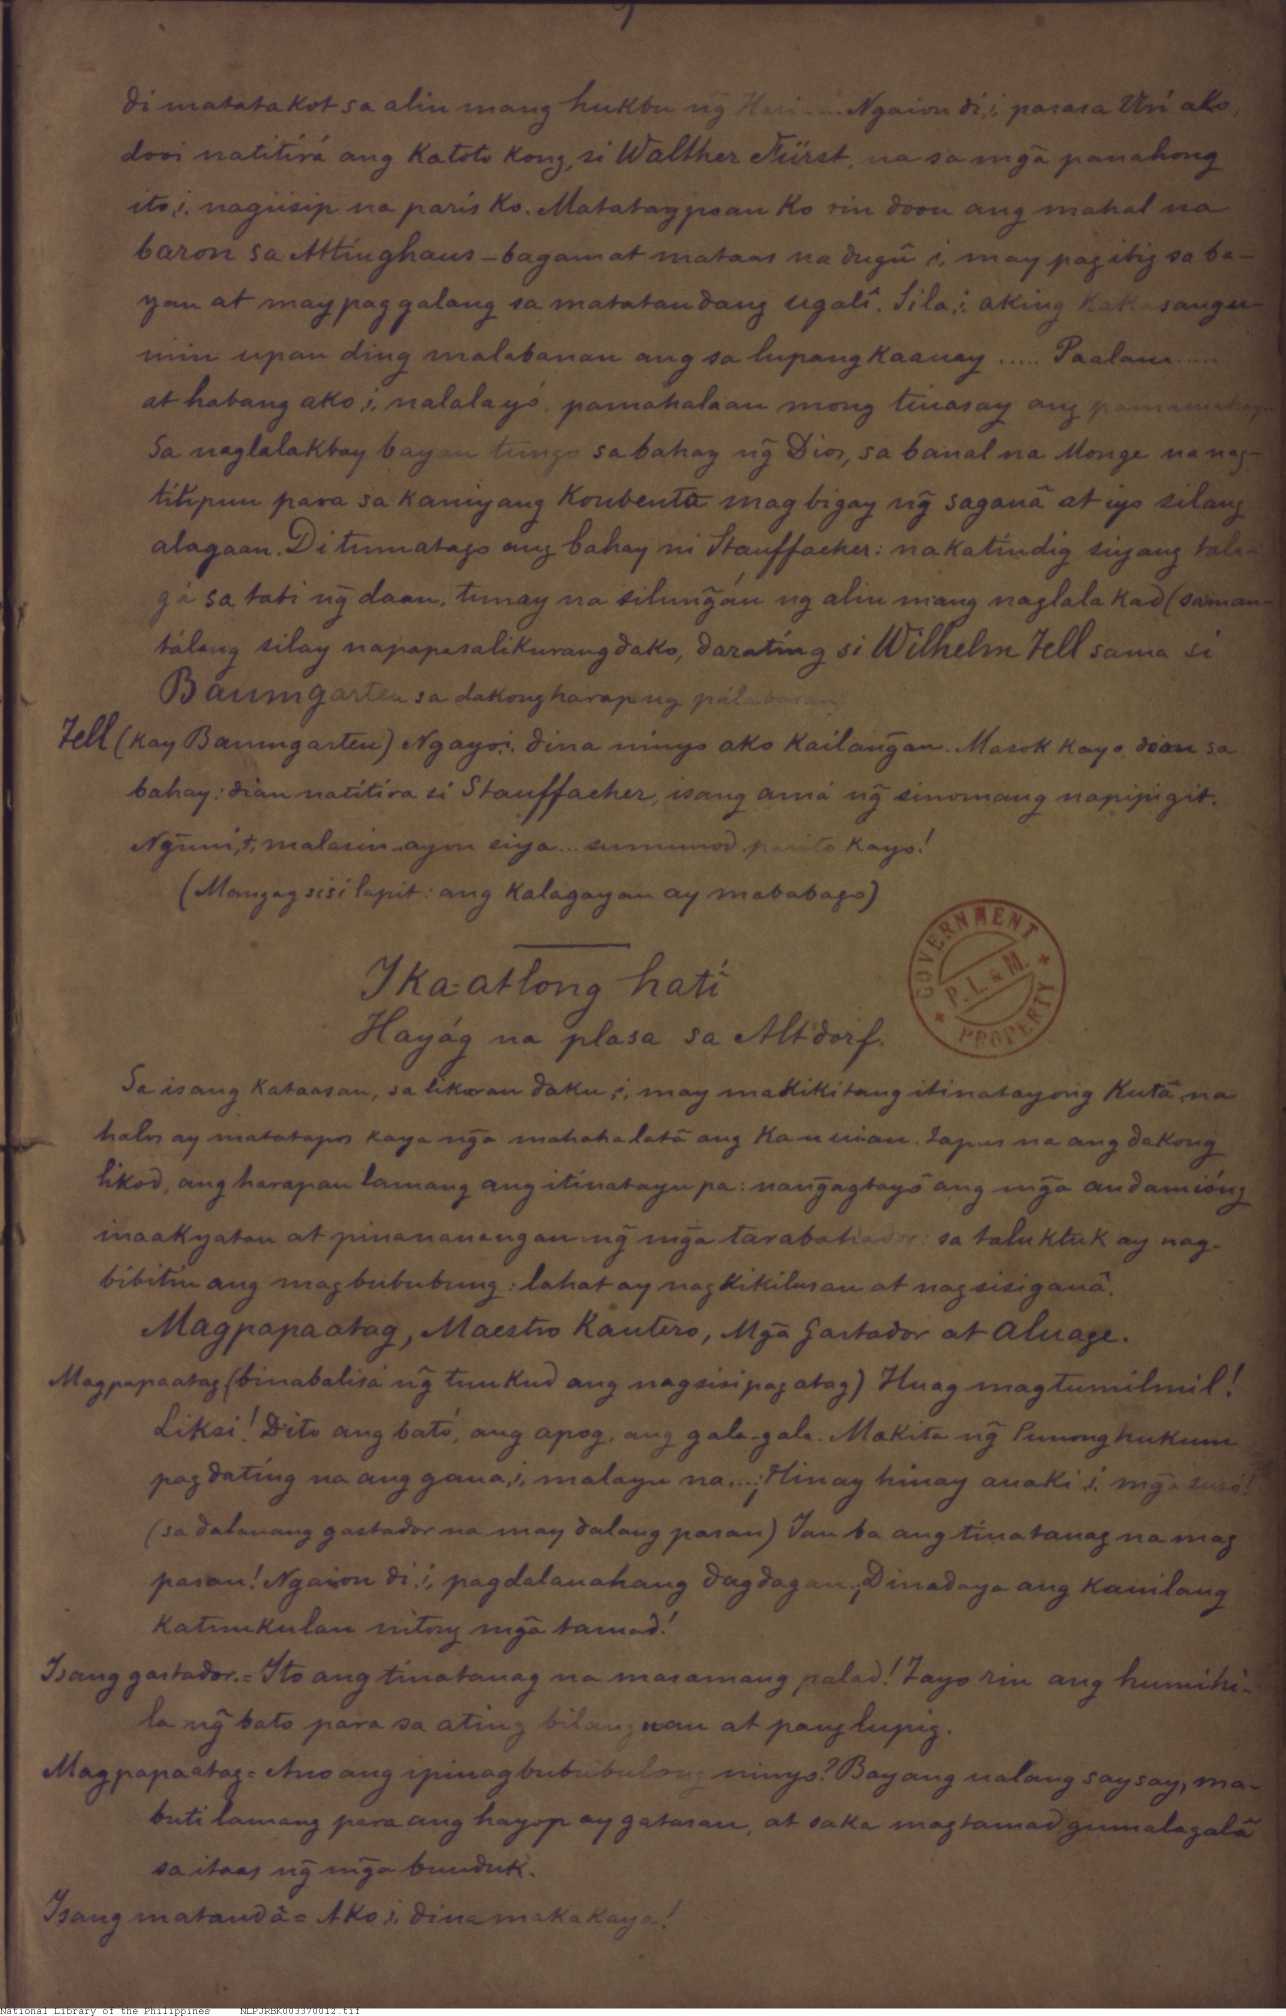 di matatakot sa alin mang hukbu ng̃ Ngaion di,i, parasa Uri ako,
dooi natitirá ang Katoto kong, si Walther Fürst, na sa mg̃a panahong
ito,i, nagiisip na paris ko. Matatagpoan Ko rin doon ang mahal na
baron sa Attinghaus – bagamat mataas na dugû i, may pag ibig sa ba-
yan at may pag galang sa matatandang ugalî. Sila,i, aking kakasangu-
niin upan ding malabanan ang sa lupang kaauay ..... Paalam .....
at habang ako,i, nalalayó, pamahalaan mong tinasay ang
Sa naglalakbay bayan tungo sa bahay ng̃ Dios, sa banal na Monge na nag-
titipun para sa kaniyang Konbentu mag bigay ng̃ saganâ at iyo silang
alagaan. Di tumatago ang bahay ni Stauffacher: nakatindig siyang tala-
gá sa tabi ng̃ daan, tunay na silung̃án ng alin mang naglalakad (saman-
talang silay napapasalikurang dako, darating si Wilhelm Tell sama si
Baumgarten sa dakong harap ng
Tell (kay Baumgarten) Ngayo,i, dina ninyo ako kailang̃an. Masok kayo dian sa
bahay: dian natitira si Stauffacher, isang amá ng̃ sinomang napipigit.
Ng̃uni,t, malasin ayon siya... sumunod parito kayo!
(Mangag sisi lapit: ang kalagayan ay mababago)
Ika=atlong hatî
Hayág na plasa sa Altdorf.
GOVERNMENT PROPERTY
P. L. & M.
Sa isang kataasan, sa likuran daku,i, may makikitang itinatayong Kutâ, na
halos ay matatapos kaya ng̃a mahahalatâ ang Kaunian. Tapus na ang dakong
likod, ang harapan lamang ang itinatayu pa: nang̃agtayô ang mg̃a andamióng
inaakyatan at pinananaugan ng̃ mg̃a tarabahador: sa taluktuk ay nag-
bibitin ang magbububung: lahat ay nagkikilusan at nagsisiganâ.
Magpapaatag, Maestro Kantero, Mg̃a Gastador at aluage.
Magpapaatag (binabalisá ng̃ tunkud ang nagsisipagatag) Huag magtumilmil!
Liksi! Dito ang bató, ang apog, ang gala-gala. Makita ng̃ Punong hukum
pagdating na ang gaua,i, malayu na....¡Hinay hinay anaki,i, mg̃a susó!
(sa dalauang gastador na may dalang pasan) Ian ba ang tinatauag na mag
pasan! Ngaion di,i, pagdalauahang dagdagan. ¡Dinadaya ang kanilang
katunkulan nitong mg̃a tamad!
Isang gastador.= Ito ang tinatauag na masamang palad! Tayo rin ang humihi-
la ng̃ bato para sa ating bilanguan at panglupig.
Magpapaatag= Ano ang ipinagbububulong ninyo? Bayang ualang saysay, ma-
buti lamang para ang hayop ay gatasan, at saka magtamad gumalagalâ
sa itaas ng̃ mg̃a bunduk.
Isang matandâ= Ako,i, dina makakaya!
National Library of the Philippines NLPJRBK003370012.tif